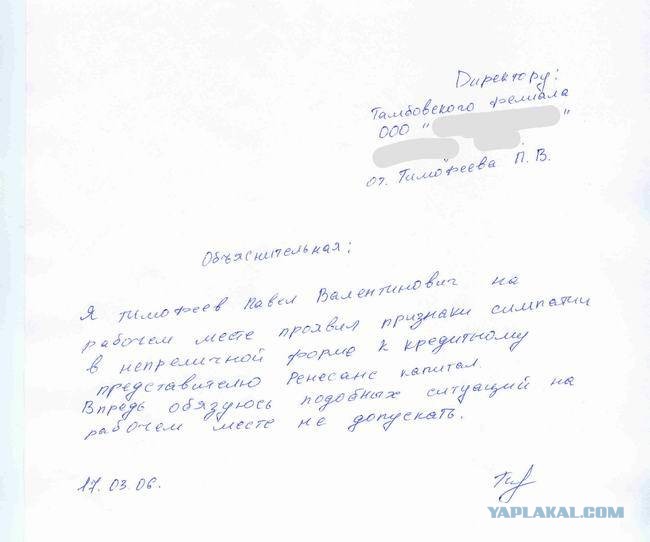 Директору:
Тамбовского фелиала
ООО " "
от. Тимофеева П. В.
Объяснительная:
Я Тимофеев Павел Валентинович на
рабочем месте проявил признаки симпатии
в непреличной форме к кредитному
представителю Ренесанс капитал.
Впредь обязуюсь подобных ситуаций на
рабочем месте не допускать.
17. 03. 06.
YAPLAKAL.COM